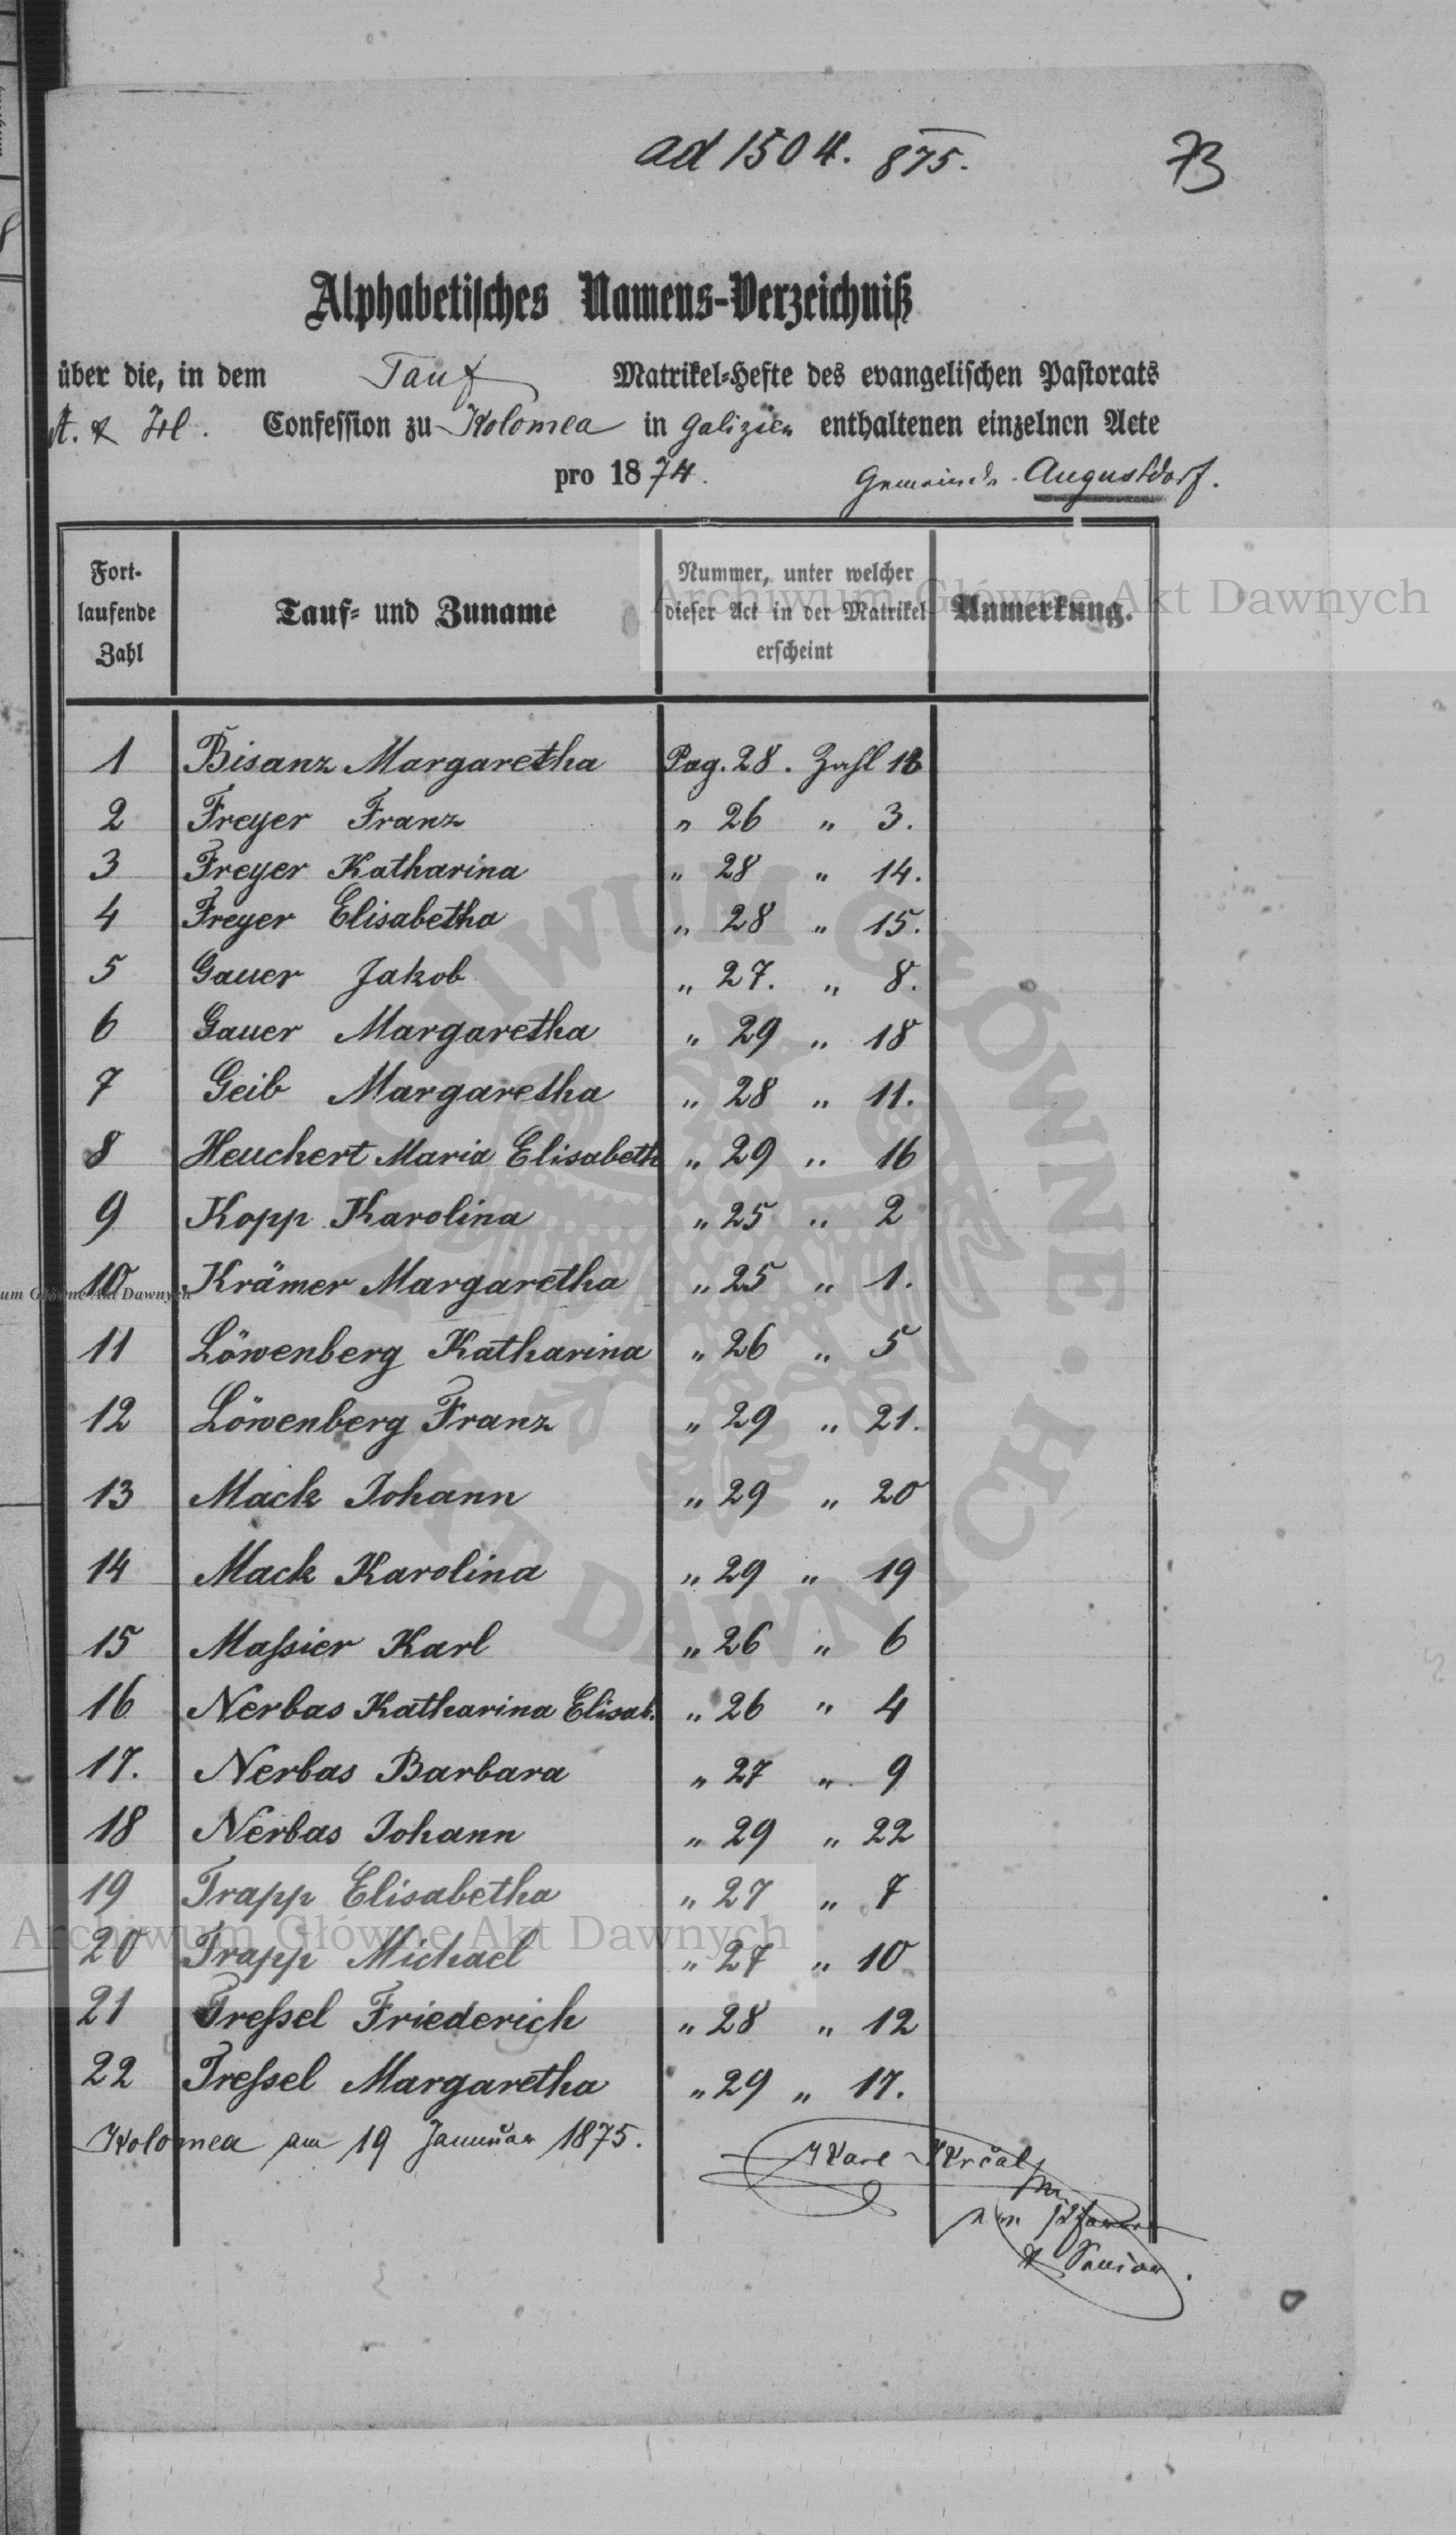 ad 1504. 875. 73
Alphabetisches Namens-Verzeichniß
über die, in dem Tauf Matrikel-Hefte des evangelischen Pastorats
A. & H. Confession zu Kolomea in Galizien enthaltenen einzelnen Acte
pro 1874. Gemeinde Augustdorf.
Fort-
laufende
Zahl
Tauf- und Zuname
Nummer, unter welcher
dieser Act in der Matrikel
erscheint
Anmerkung.
Archiwum Główne Akt Dawnych
1 Bisanz Margaretha Pag. 28. Zahl 13
2 Freyer Franz " 26 " 3.
3 Freyer Katharina " 28 " 14.
4 Freyer Elisabetha " 28 " 15.
5 Gauer Jakob " 27. " 8.
6 Gauer Margaretha " 29 " 18
7 Geib Margaretha " 28 " 11.
8 Heuchert Maria Elisabeth " 29 " 16
9 Kopp Karolina " 25 " 2
10 Krämer Margaretha " 25 " 1.
11 Löwenberg Katharina " 26 " 5
12 Löwenberg Franz " 29 " 21.
13 Mack Johann " 29 " 20
14 Mack Karolina " 29 " 19
15 Maſsier Karl " 26 " 6
16 Nerbas Katharina Elisab. " 26 " 4
17. Nerbas Barbara " 27 " 9
18 Nerbas Johann " 29 " 22
19 Trapp Elisabetha " 27 " 7
Archiwum Główne Akt Dawnych
20 Trapp Michael " 27 " 10
21 Treſsel Friederich " 28 " 12
22 Treſsel Margaretha " 29 " 17.
Kolomea am 19 Januar 1875.
Karl Krčal
ev. Pfarrer
& Senior.
ARCHIWUM GŁÓWNE AKT DAWNYCH